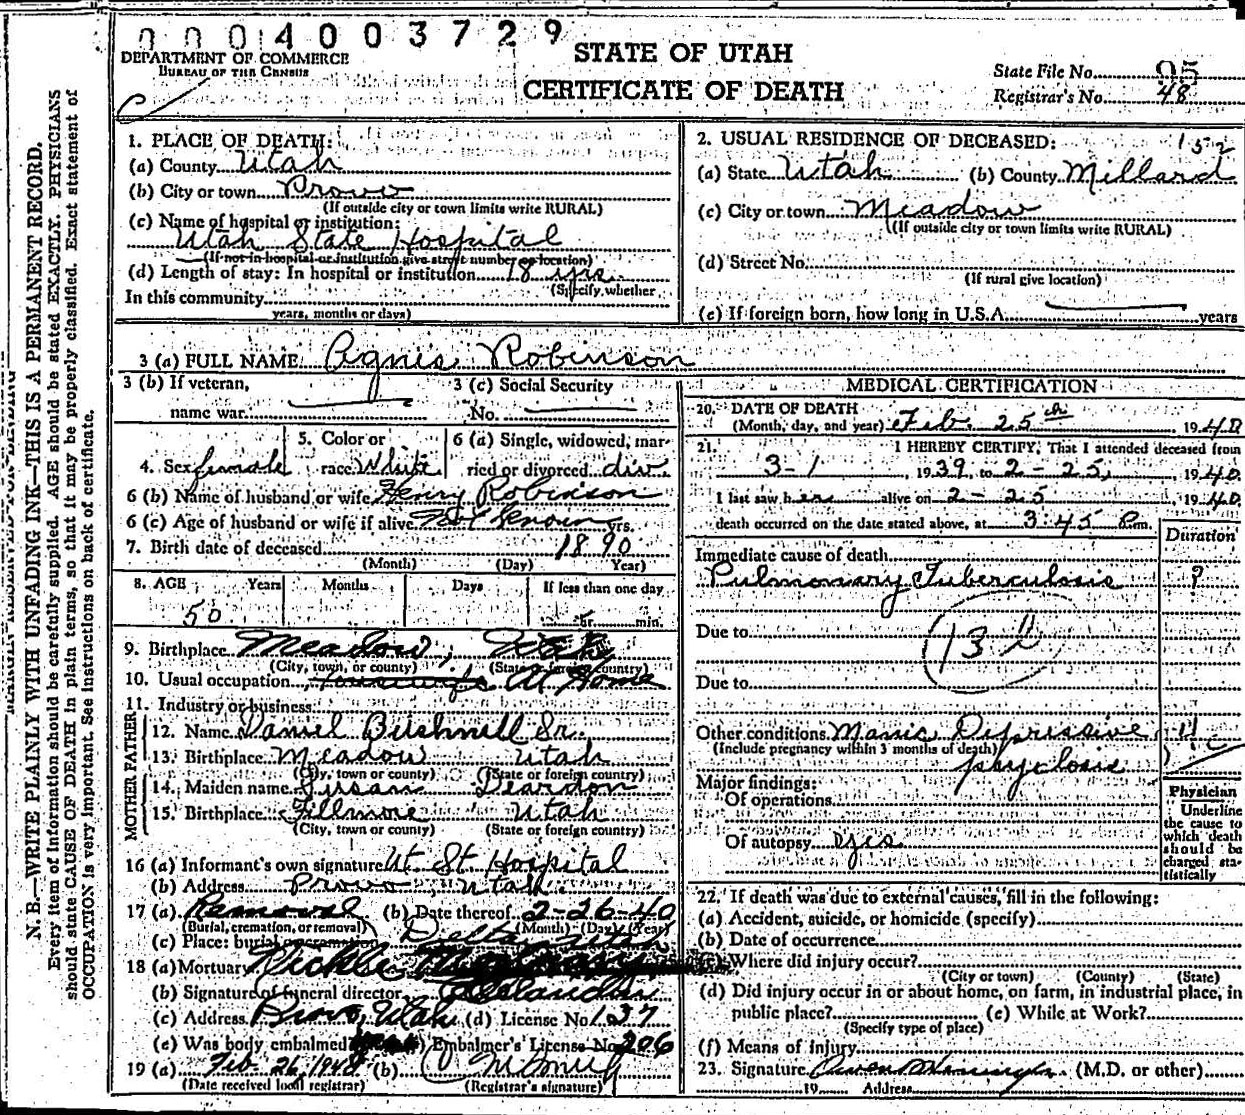 0004003729
DEPARTMENT OF COMMERCE
BUREAU OF THE CENSUS
STATE OF UTAH
CERTIFICATE OF DEATH
State File No. 95
Registrar's No. 48
N. B.—WRITE PLAINLY WITH UNFADING INK—THIS IS A PERMANENT RECORD.
Every item of information should be carefully supplied. AGE should be stated EXACTLY. PHYSICIANS
should state CAUSE OF DEATH in plain terms, so that it may be properly classified. Exact statement of
OCCUPATION is very important. See instructions on back of certificate.
1. PLACE OF DEATH:
(a) County Utah
(b) City or town Provo
(If outside city or town limits write RURAL)
(c) Name of hospital or institution:
Utah State Hospital
(If not in hospital or institution give street number or location)
(d) Length of stay: In hospital or institution 18 yrs.
(Specify whether
In this community
years, months or days)
2. USUAL RESIDENCE OF DECEASED: 152
(a) State Utah (b) County Millard
(c) City or town Meadow
(If outside city or town limits write RURAL)
(d) Street No.
(If rural give location)
(e) If foreign born, how long in U.S.A. years
3 (a) FULL NAME Agnes Robinson
3 (b) If veteran,
name war
3 (c) Social Security
No.
4. Sex female
5. Color or
race White
6 (a) Single, widowed, mar-
ried or divorced div.
6 (b) Name of husband or wife Henry Robinson
6 (c) Age of husband or wife if alive Not Known yrs.
7. Birth date of deceased 1890
(Month) (Day) Year)
8. AGE Years Months Days If less than one day
50 hr. min.
9. Birthplace Meadow, Utah
(City, town, or county) (State or foreign country)
10. Usual occupation Housewife At Home
11. Industry or business
FATHER
12. Name Daniel Bushnell Sr.
13. Birthplace Meadow Utah
(City, town or county) (State or foreign country)
MOTHER
14. Maiden name Susan Deardon
15. Birthplace Fillmore Utah
(City, town or county) (State or foreign country)
16 (a) Informant's own signature Ut St. Hospital
(b) Address Provo, Utah
17 (a) Removal (b) Date thereof 2-26-40
(Burial, cremation, or removal) (Month) (Day) (Year)
(c) Place: burial or cremation Delta, Utah
18 (a) Mortuary
(b) Signature of funeral director
(c) Address Provo, Utah (d) License No. 137
(e) Was body embalmed Embalmer's License No. 206
19 (a) Feb. 26, 1940 (b)
(Date received local registrar) (Registrar's signature)
MEDICAL CERTIFICATION
20. DATE OF DEATH
(Month, day, and year) Feb. 25th 1940
21. I HEREBY CERTIFY, That I attended deceased from
3-1 1939, to 2-25, 1940.
I last saw her alive on 2-25 1940.
death occurred on the date stated above, at 3:45 P.m.
Duration
Immediate cause of death
Pulmonary Tuberculosis ?
Due to
Due to
Other conditions Manic Depressive
(Include pregnancy within 3 months of death)
phyclosis
Major findings:
Of operations
Of autopsy yes
Physician
Underline
the cause to
which death
should be
charged sta-
tistically
22. If death was due to external causes, fill in the following:
(a) Accident, suicide, or homicide (specify)
(b) Date of occurrence
(c) Where did injury occur?
(City or town) (County) (State)
(d) Did injury occur in or about home, on farm, in industrial place, in
public place? (e) While at Work?
(Specify type of place)
(f) Means of injury
23. Signature (M.D. or other)
19 Address